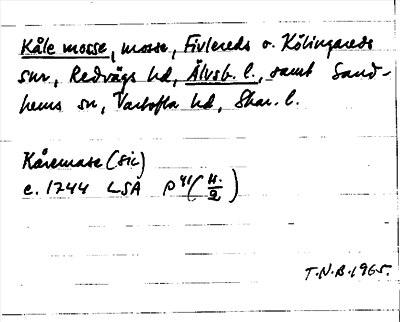 Kåle mosse, mosse, Fivlereds o. Kölingareds
snr, Redvägs hd, Älvsb. l., samt Sand-
hems sn, Vartofta hd, Skar. l.
Kåremase (sic)
c. 1744 LSA P 41 (11/2)
T.N.B. 1965.